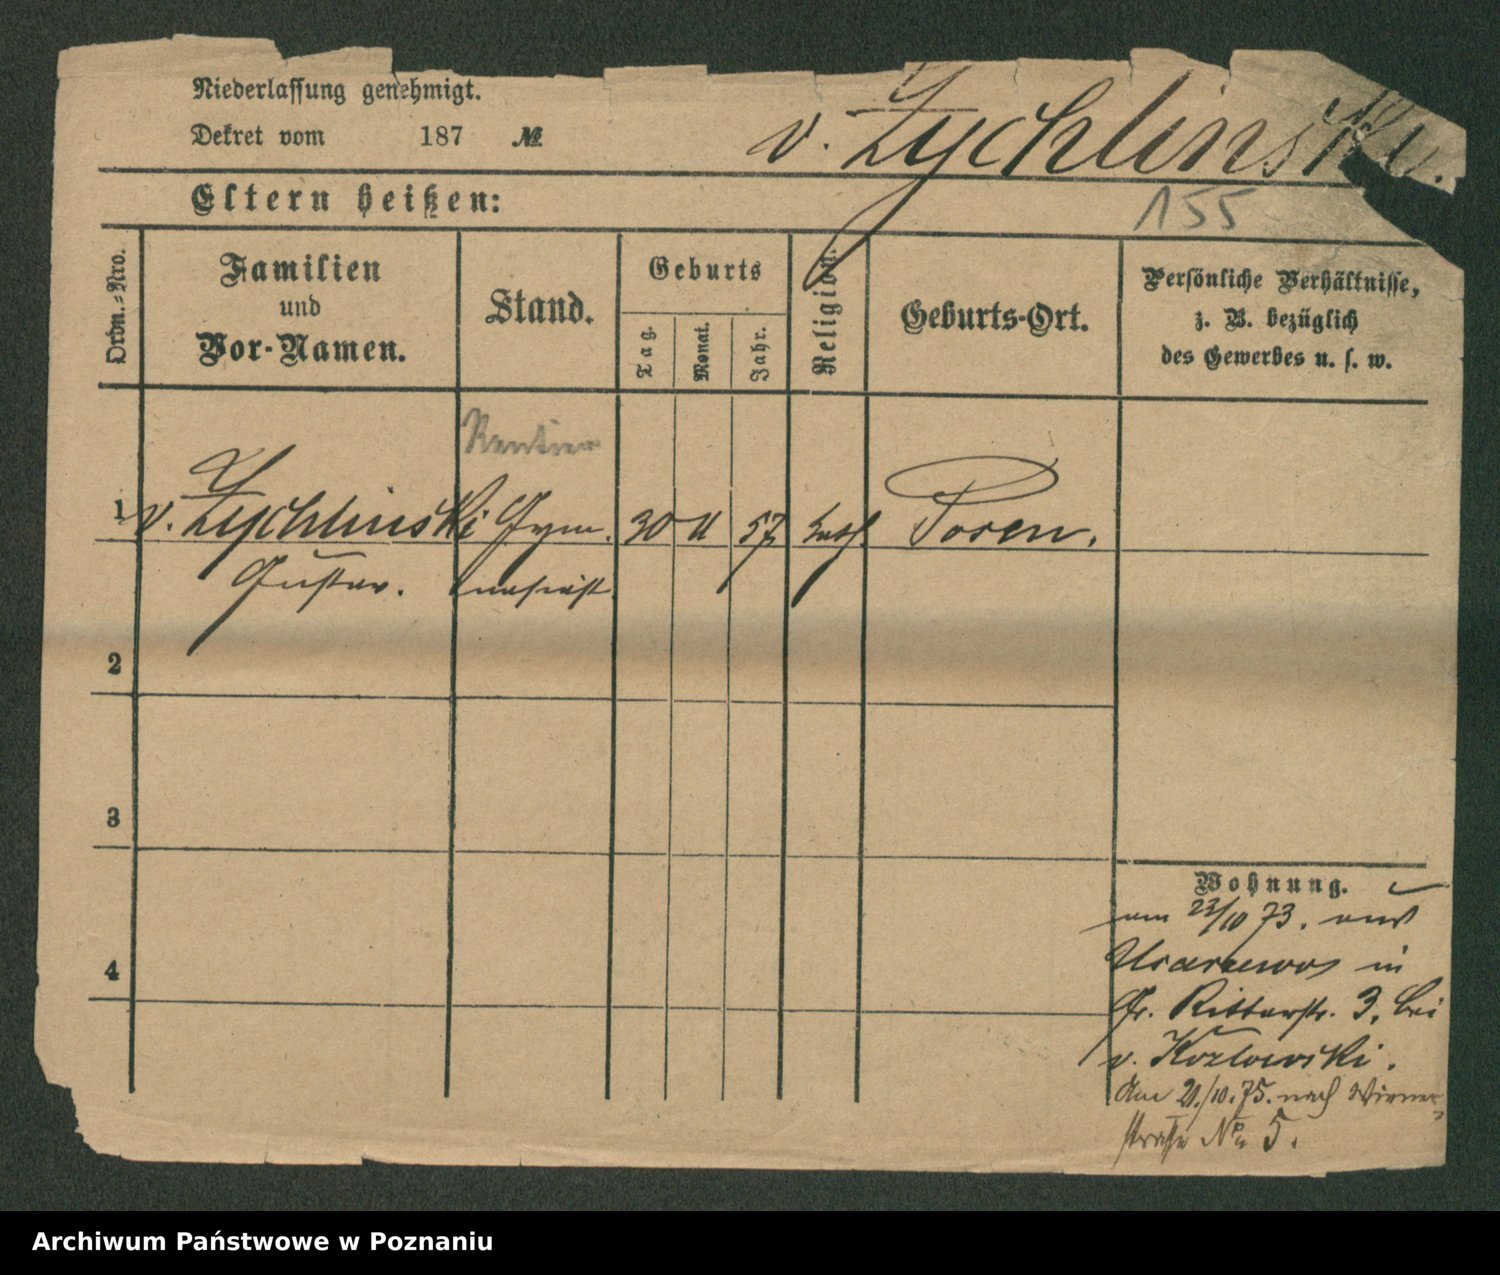 Niederlassung genehmigt.
Dekret vom 187 №
v. Zychlinski.
Eltern heißen:
155
Ordn.-Nro.
Familien
und
Vor-Namen.
Stand.
Geburts
Tag.
Monat.
Jahr.
Religion.
Geburts-Ort.
Persönliche Verhältnisse,
z. B. bezüglich
des Gewerbes u. s. w.
Rentier
1 v. Zychlinski Gym. 30 11 57 kath. Posen.
Gustav. nasiast
2
3
4
Wohnung.
am 23/10 73. aus
Usarzewo in
Gr. Ritterstr. 3. bei
v. Kozlowski.
Am 21./10. 75. nach Wiener-
straße No 5.
Archiwum Państwowe w Poznaniu